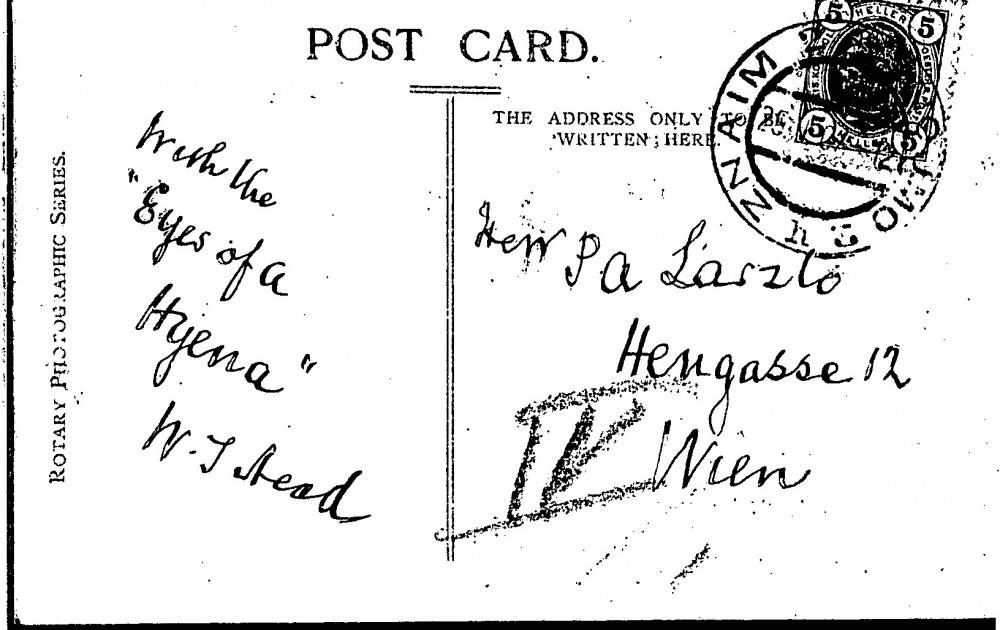 POST CARD.
THE ADDRESS ONLY TO BE
WRITTEN HERE.
ROTARY PHOTOGRAPHIC SERIES.
With the
"Eyes of a
Hyena"
W. T Stead
Herr P A Laszlo
Heugasse 12
IV Wien
ZNAIM
5 HELLER 5
5 HELLER 5